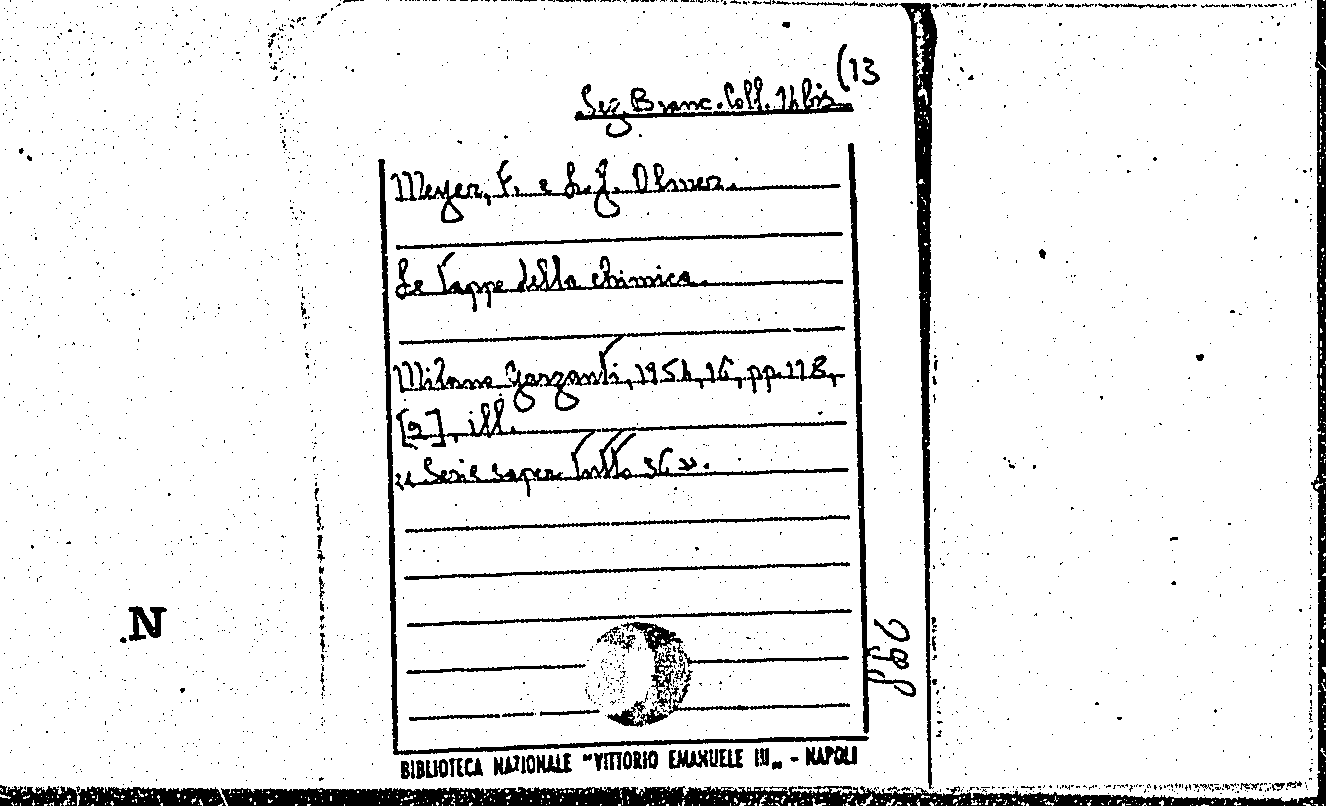 Sez. Branc. Coll. 16 bis (13
Meyer, F. e L. J. Olmer.
Le Tappe della chimica.
Milano Garzanti, 1954, 16, pp. 118,
[2], ill.
« Serie saper Tutto 36 ».
N
BIBLIOTECA NAZIONALE "VITTORIO EMANUELE III„ - NAPOLI